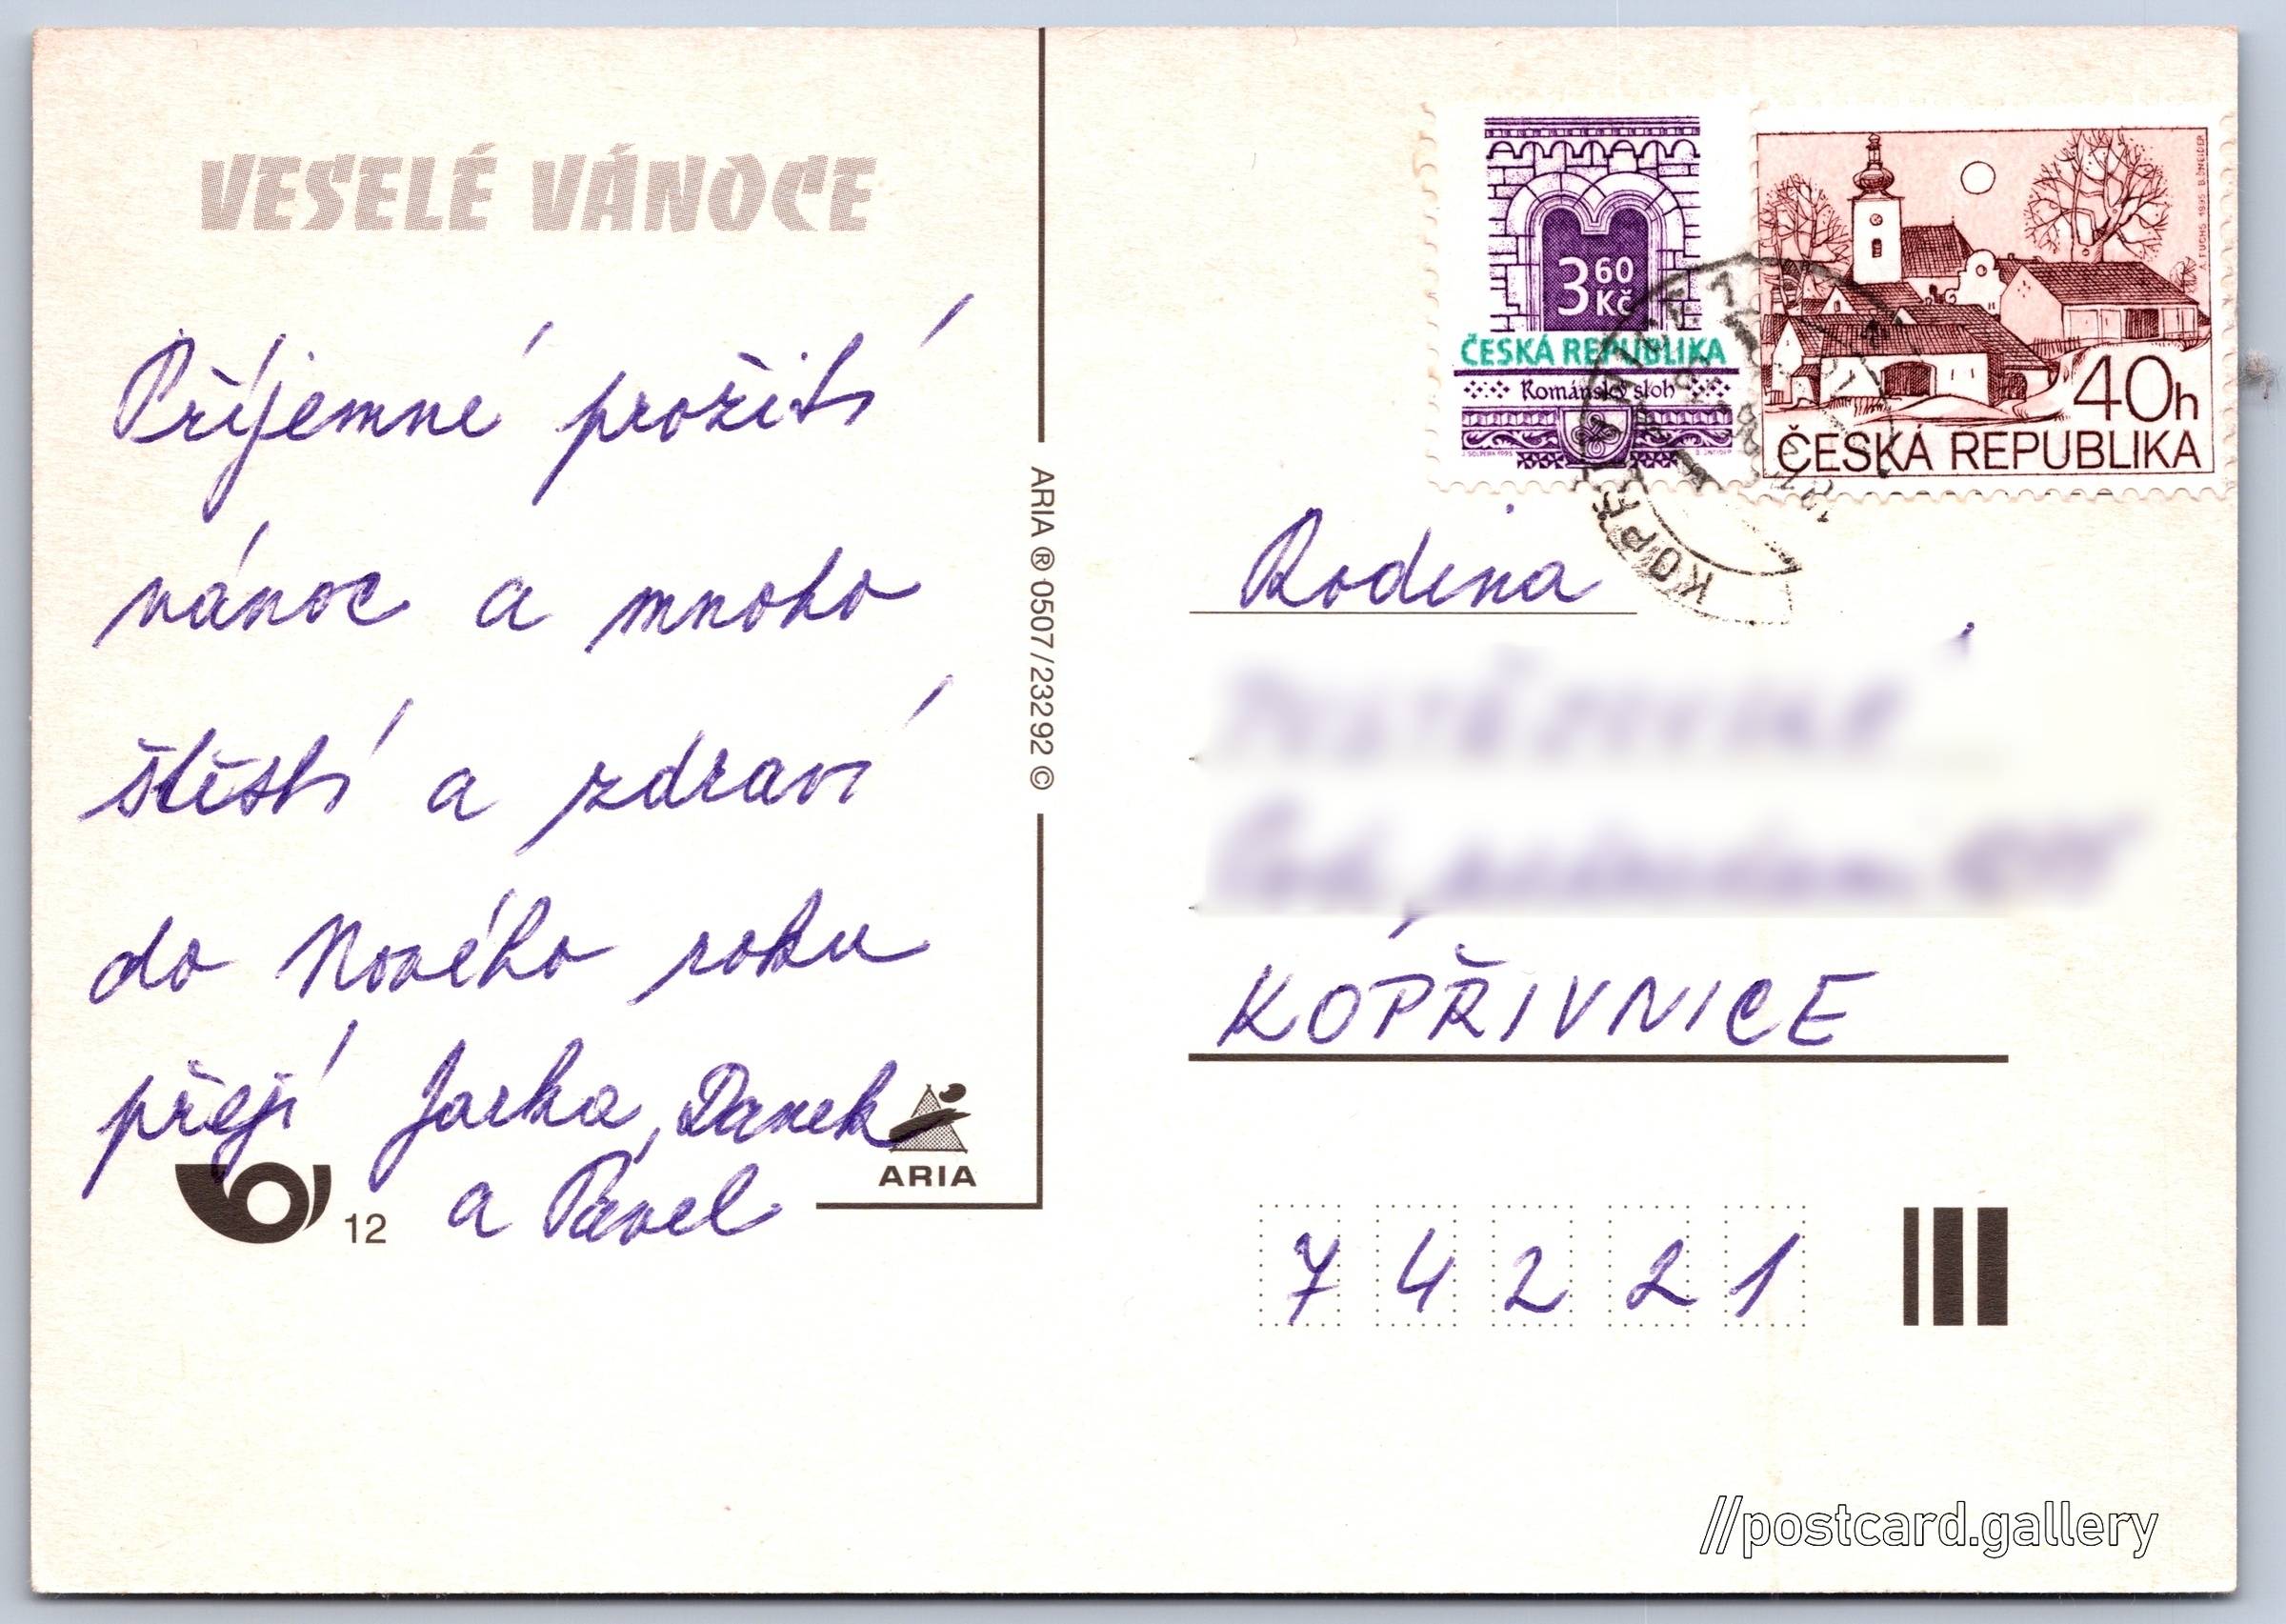 VESELÉ VÁNOCE
Příjemné prožití
vánoc a mnoho
štěstí a zdraví
do Nového roku
přejí Jarka, Danek
a Pavel
12
ARIA
ARIA ® 0507/23292 ©
3 60 Kč
ČESKÁ REPUBLIKA
Románský sloh
40h
ČESKÁ REPUBLIKA
Rodina
KOPŘIVNICE
7 4 2 2 1
//postcard.gallery